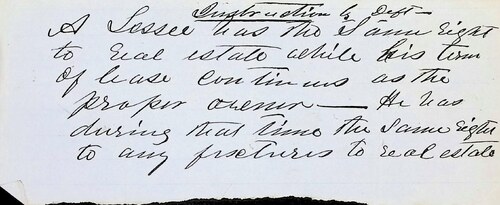 Instruction by Deft —
A Lessee has the same right
to real estate while his term
of lease continues as the
proper owner — He has
during that time the same right
to any fixtures to real estate